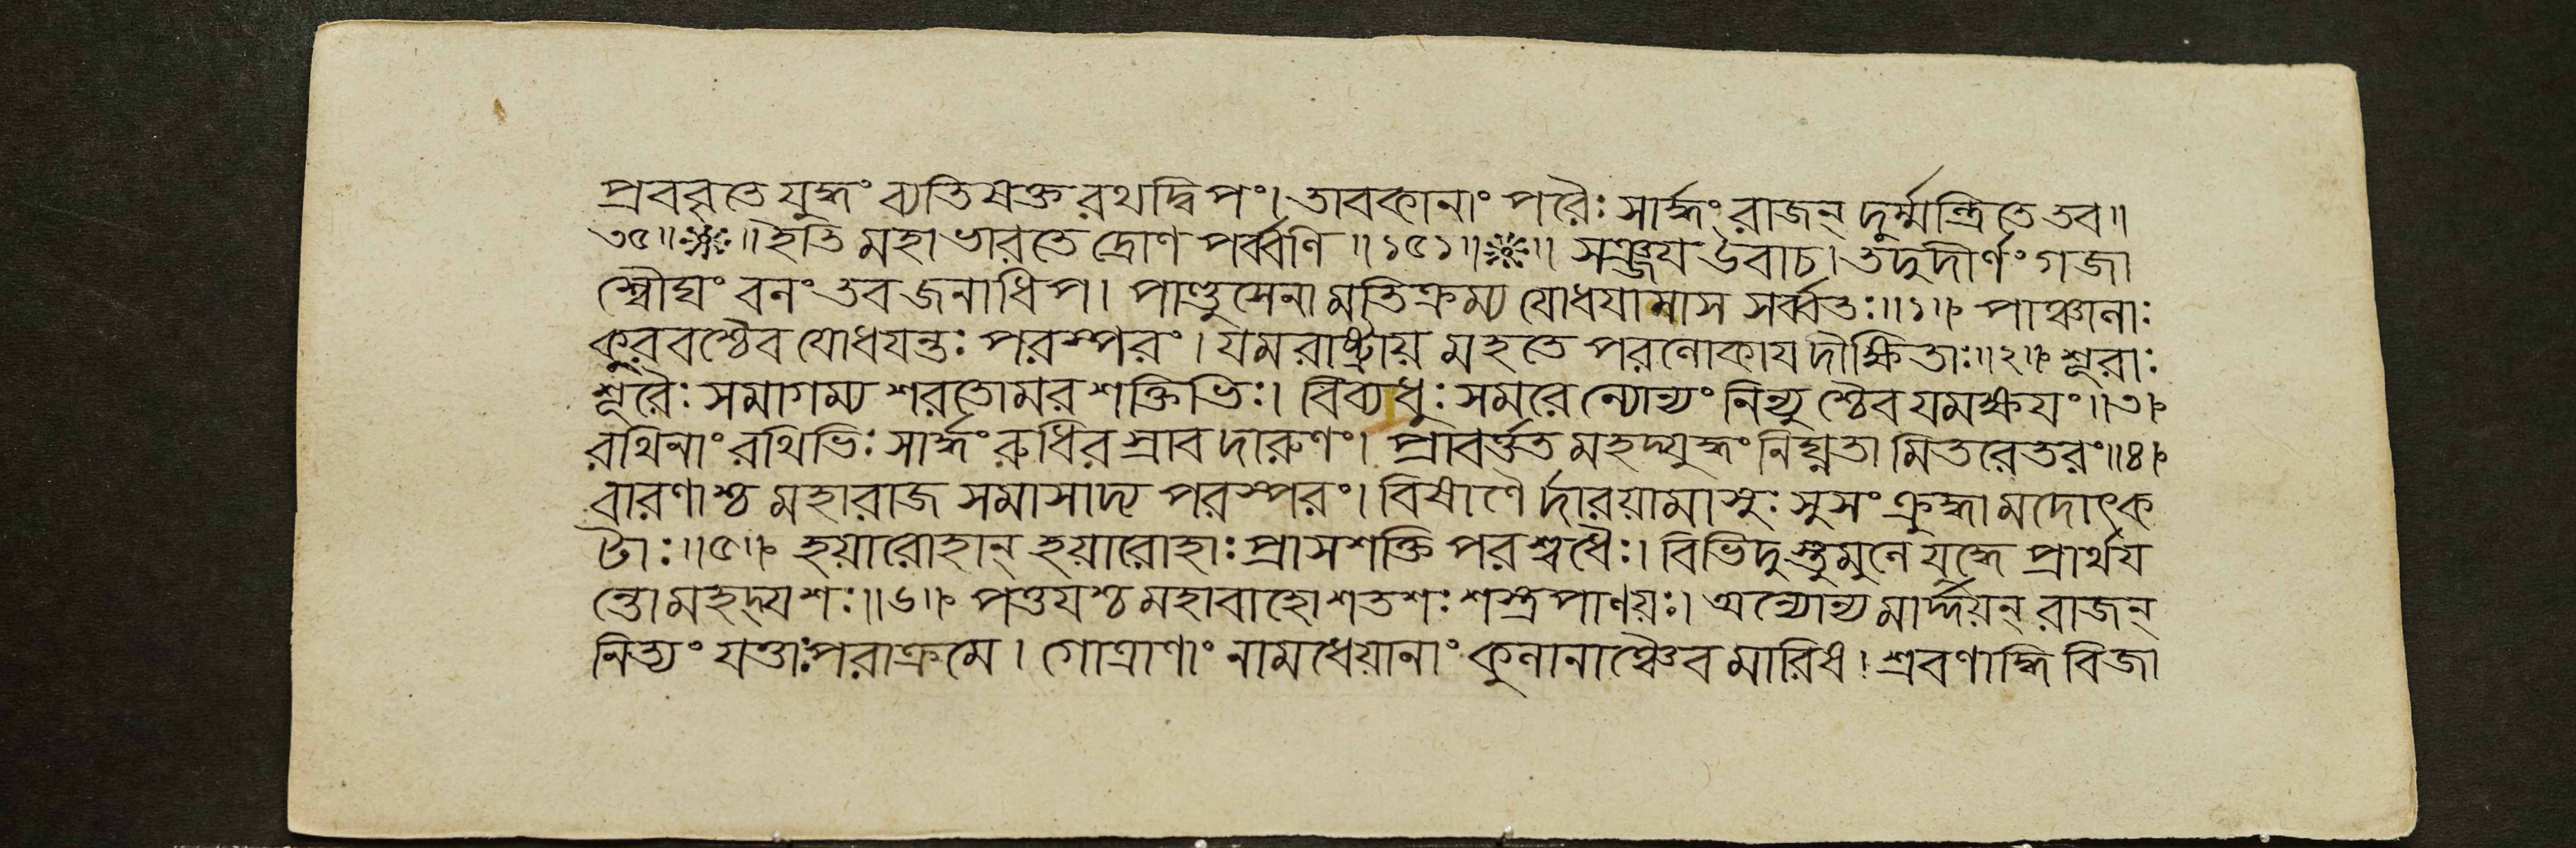 প্রববৃতে যুদ্ধং ব্যতিষক্ত রথদ্বিপং। তাবকানাং পরৈঃ সার্দ্ধং রাজন্ দুর্ম্মন্ত্রিতে তব॥
৩৫॥❈॥ ইতি মহাভারতে দ্রোণ পর্ব্বণি॥১৫১॥❈॥ সঞ্জয় উবাচ। তদুদীর্ণং গজা
শ্বৌঘং বলং তব জনাধিপ। পাণ্ডুসেনামতিক্রম্য যোধযামাস সর্ব্বতঃ॥১॥ পাঞ্চালাঃ
কুরবশ্চৈব যোধযন্তঃ পরস্পরং। যমরাষ্ট্রায় মহতে পরলোকায দীক্ষিতাঃ॥২॥ শূরাঃ
শূরৈঃ সমাগম্য শরতোমর শক্তিভিঃ। বিব্যধুঃ সমরেন্যোন্যং নিন্যুশ্চৈব যমক্ষযং॥৩॥
রথিনাং রথিভিঃ সার্দ্ধং রুধিরস্রাব দারুণং। প্রাবর্ত্তত মহদ্যুদ্ধং নিঘ্নতামিতরেতরং॥৪॥
বারণাশ্চ মহারাজ সমাসাদ্য পরস্পরং। বিষাণৈর্দারয়ামাসুঃ সুসংক্রুদ্ধা মদোৎক
টাঃ॥৫॥ হয়ারোহান্ হয়ারোহাঃ প্রাসশক্তি পরশ্বধৈঃ। বিভিদুস্তুমুলে যুদ্ধে প্রার্থয
ন্তো মহদ্যশঃ॥৬॥ পত্তযশ্চ মহাবাহো শতশঃ শস্ত্রপাণয়ঃ। অন্যোন্যমার্দ্দয়ন্ রাজন্
নিত্যং যত্তাঃ পরাক্রমে। গোত্রাণাং নামধেয়ানাং কুলানাঞ্চৈব মারিষ। শ্রবণাদ্ধি বিজা